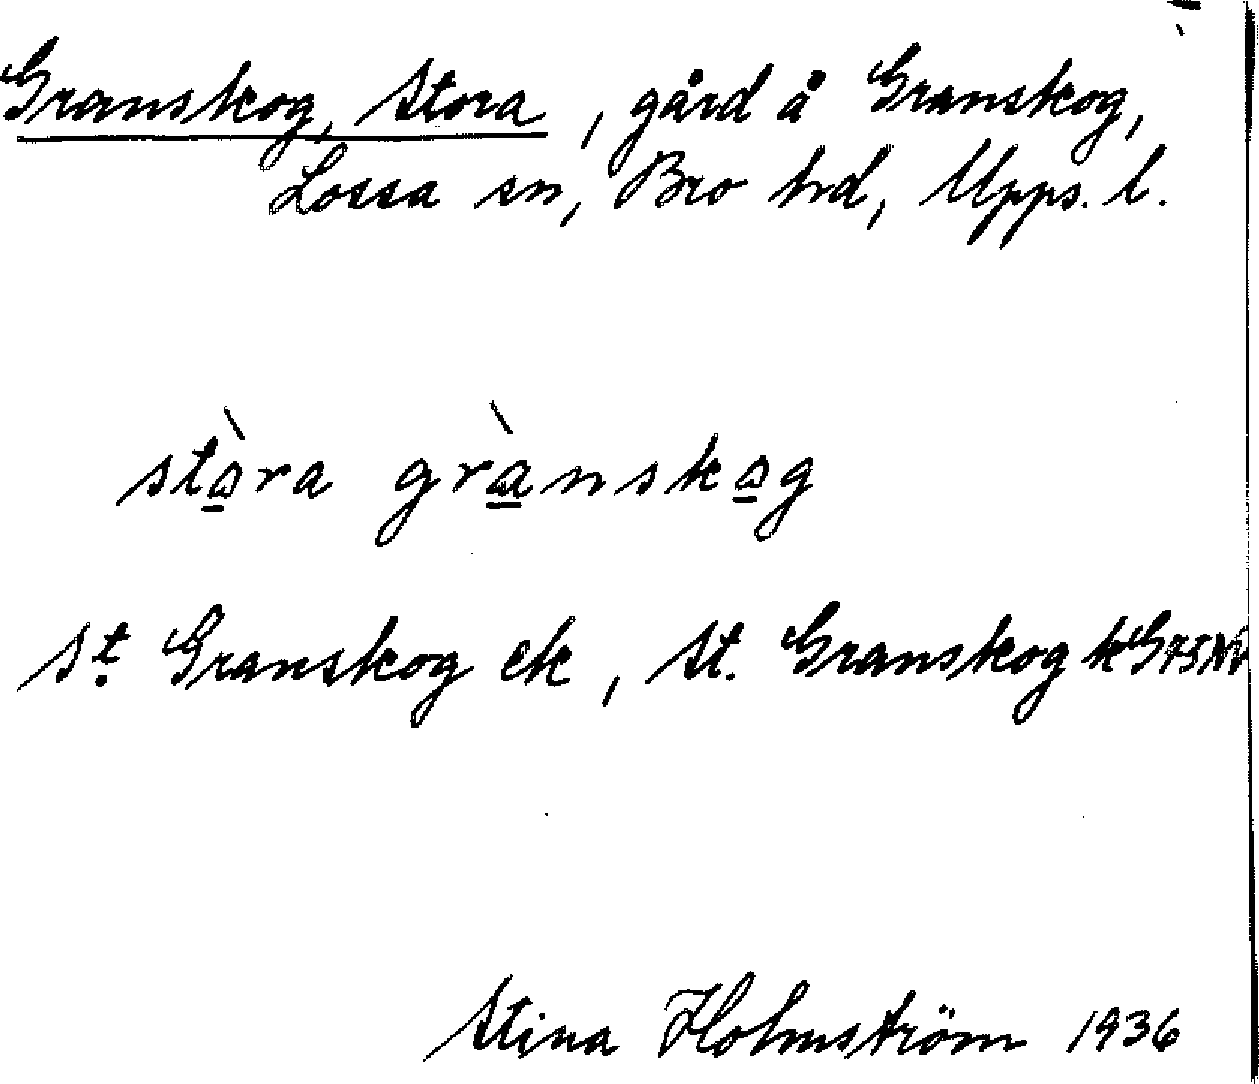 Granskog, Stora, gård å Granskog,
Lossa sn, Bro hd, Upps. l.
stò̱ra grà̱nsko̱g
St. Granskog ek, St. Granskog
Stina Holmström 1936